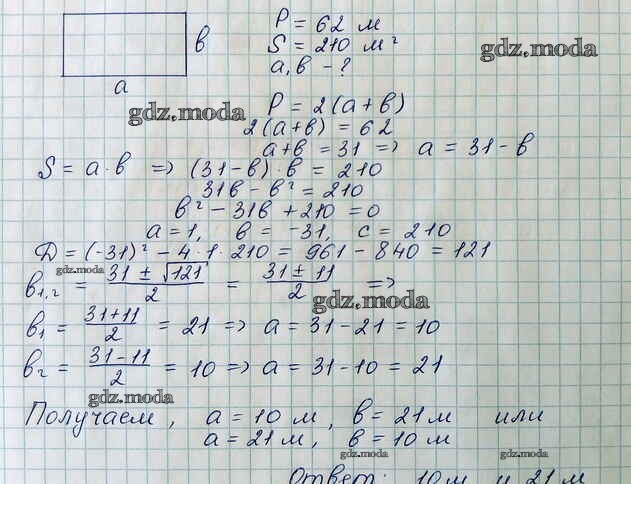 P = 62 м
S = 210 м²
a, b - ?
b
a
gdz.moda
gdz.moda
P = 2(a+b)
2(a+b) = 62
a+b = 31 => a = 31 - b
S = a·b => (31-b)·b = 210
31b - b² = 210
b² - 31b + 210 = 0
a = 1, b = -31, c = 210
D = (-31)² - 4·1·210 = 961 - 840 = 121
gdz.moda
b₁,₂ = (31 ± √121)/2 = (31 ± 11)/2 =>
gdz.moda
b₁ = (31+11)/2 = 21 => a = 31 - 21 = 10
b₂ = (31-11)/2 = 10 => a = 31 - 10 = 21
gdz.moda
Получаем, a = 10 м, b = 21 м или
a = 21 м, b = 10 м
gdz.moda
gdz.moda
Ответ: 10 м и 21 м